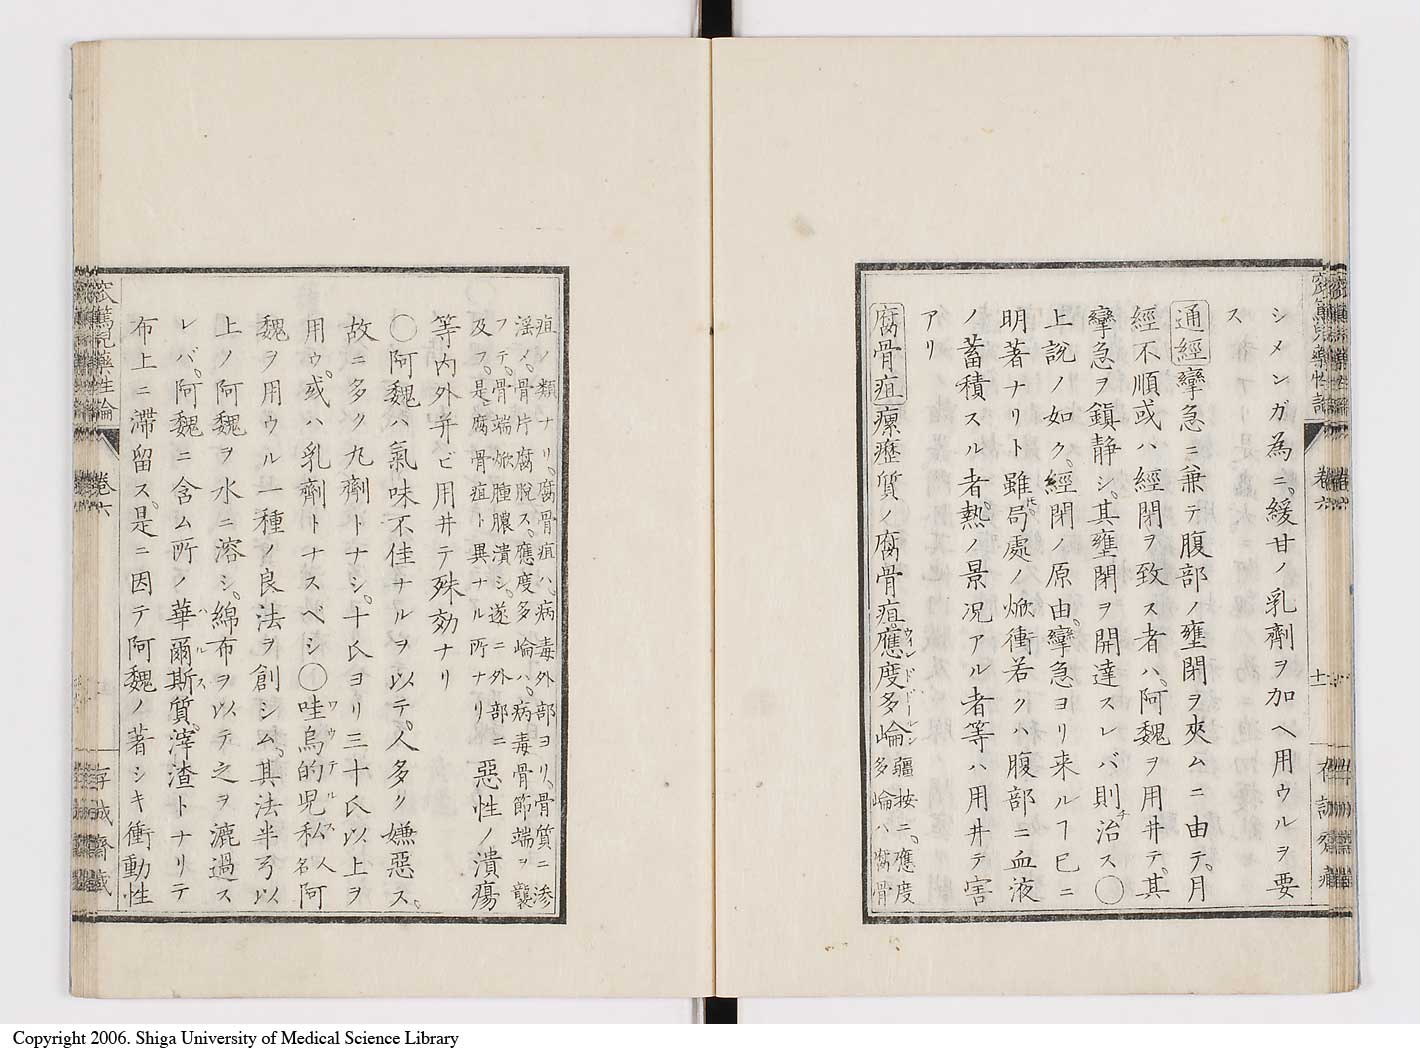 シメンガ為ニ。緩甘ノ乳劑ヲ加ヘ用ウルヲ要
ス
通經 攣急ニ兼テ腹部ノ壅閉ヲ夾ムニ由テ。月
經不順或ハ經閉ヲ致ス者ハ。阿魏ヲ用井テ。其
攣急ヲ鎮静シ。其壅閉ヲ開達スレバ則チ治ス〇
上説ノ如ク。經閉ノ原由。攣急ヨリ来ルヿ已ニ
明著ナリト雖ヒ。局處ノ焮衝若クハ腹部ニ血液
ノ蓄積スル者。熱ノ景况アル者等ハ用井テ害
アリ
腐骨疽 瘰癧質ノ腐骨疽。應度多崘ウインドドールン
疆按ニ。應度
多崘ハ腐骨
疽ノ類ナリ。腐骨疽ハ。病毒外部ヨリ。骨質ニ滲
淫ノ。骨片腐脱ス。應度多崘ハ。病毒骨節端ヲ襲
フテ。骨端焮腫膿潰シ。遂ニ外部ニ
及フ。是腐骨疽ト異ナル所ナリ
惡性ノ潰瘍
等内外并ビ用井テ殊効ナリ
〇阿魏ハ氣味不佳ナルヲ以テ。人多ク嫌惡ス。
故ニ多ク丸劑トナシ。十氏ヨリ三十氏以上ヲ
用ウ。或ハ乳劑トナスベシ〇哇烏的児私ワウテルス人名阿
魏ヲ用ウル一種ノ良法ヲ創シム。其法半弓以
上ノ阿魏ヲ水ニ溶シ。綿布ヲ以テ之ヲ漉過ス
レバ。阿魏ニ含ム所ノ華爾斯ハルス質。滓渣トナリテ
布上ニ滞留ス。是ニ因テ阿魏ノ著シキ衝動性
窊篤児藥性論
卷六
十一
存誠齋蔵
Copyright 2006. Shiga University of Medical Science Library